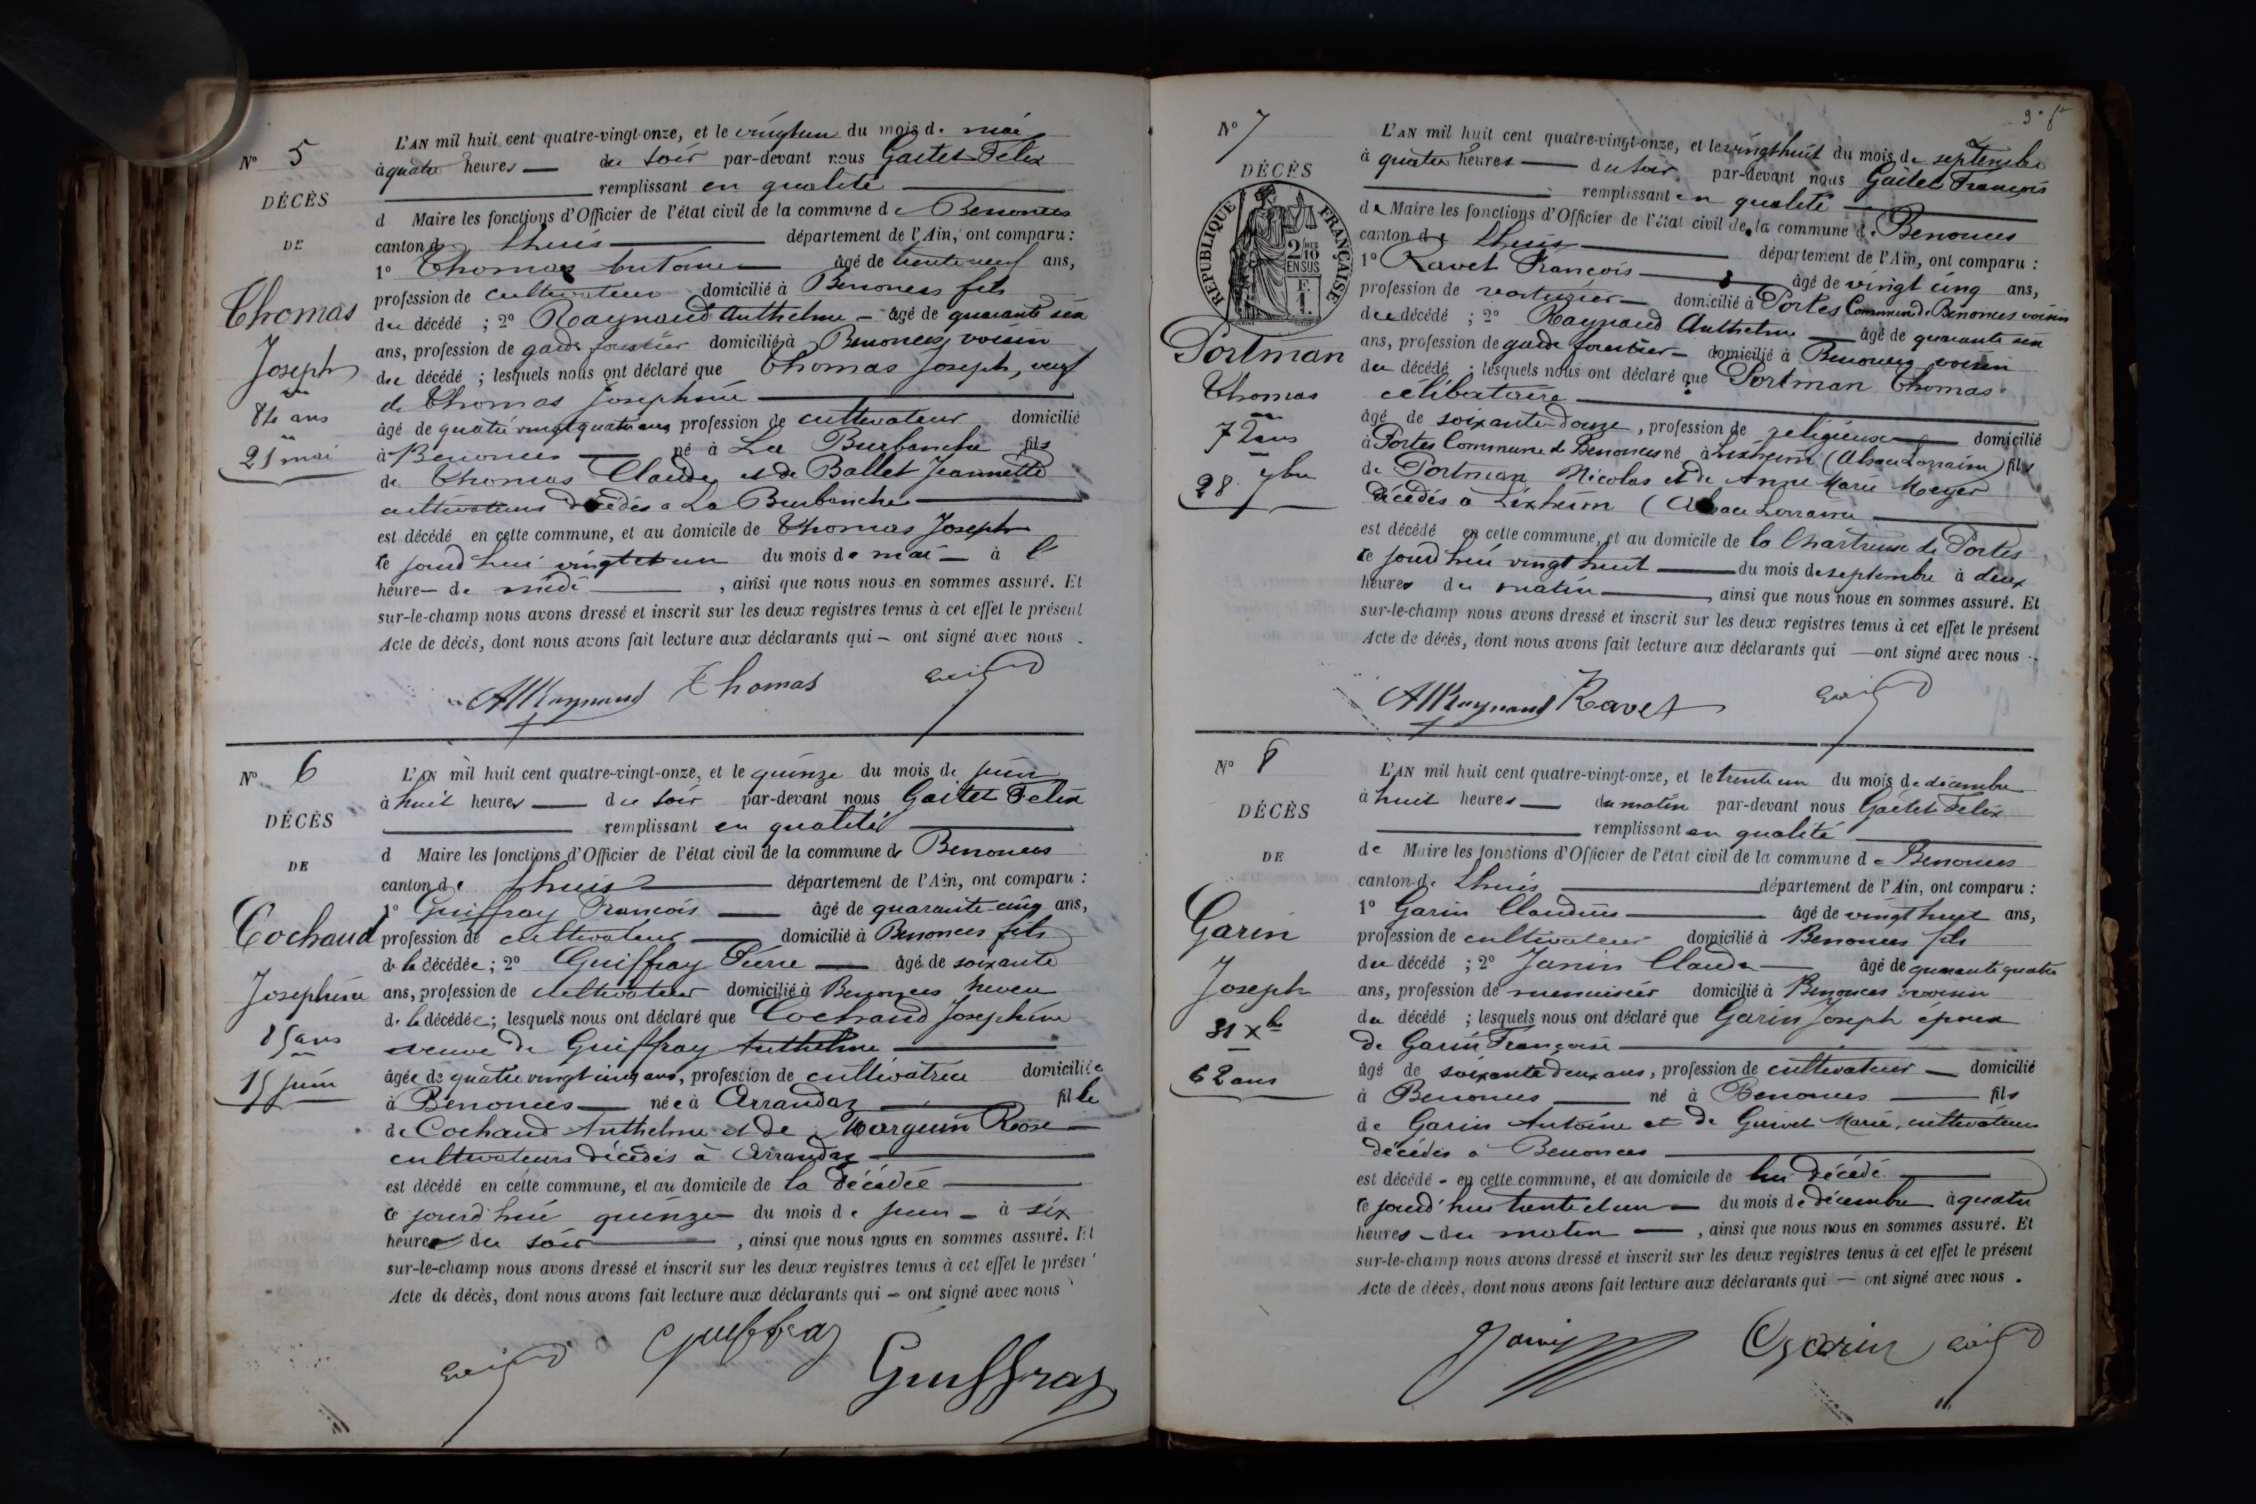 N° 5
DÉCÈS
DE
Thomas
Joseph
84 ans
21 mai
L'AN mil huit cent quatre-vingt-onze, et le vingtun du mois de mai
à quatre heures du soir par-devant nous Gaitet Félix
remplissant en qualité
d Maire les fonctions d'Officier de l'état civil de la commune de Benonces
canton de Lhuis département de l'Ain, ont comparu :
1° Thomas Antoine âgé de trente neuf ans,
profession de cultivateur domicilié à Benonces fils
du décédé ; 2° Raynaud Anthelme âgé de quarante six
ans, profession de garde forestier domicilié à Benonces voisin
du décédé ; lesquels nous ont déclaré que Thomas Joseph, veuf
de Thomas Josephine
âgé de quatre vingt quatre ans profession de cultivateur domicilié
à Benonces né à La Burbanche fils
de Thomas Claude et de Ballet Jeannette
cultivateurs décédés à La Burbanche
est décédé en cette commune, et au domicile de Thomas Joseph
ce jourd'hui vingt et un du mois de mai à l'
heure de midi , ainsi que nous nous en sommes assuré. Et
sur-le-champ nous avons dressé et inscrit sur les deux registres tenus à cet effet le présent
Acte de décès, dont nous avons fait lecture aux déclarants qui ont signé avec nous.
ARaynaud Thomas
N° 6
DÉCÈS
DE
Cochaud
Josephine
85 ans
15 juin
L'AN mil huit cent quatre-vingt-onze, et le quinze du mois de juin
à huit heures du soir par-devant nous Gaitet Felix
remplissant en qualité
d Maire les fonctions d'Officier de l'état civil de la commune de Benonces
canton de Lhuis département de l'Ain, ont comparu :
1° Guiffray François âgé de quarante-cinq ans,
profession de cultivateur domicilié à Benonces fils
de la décédée ; 2° Guiffray Pierre âgé de soixante
ans, profession de cultivateur domicilié à Benonces neveu
de la décédée ; lesquels nous ont déclaré que Cochaud Josephine
veuve de Guiffray Anthelme
âgée de quatre vingt cinq ans, profession de cultivatrice domiciliée
à Benonces née à Arrandaz fille
de Cochaud Anthelme et de Marguin Rose
cultivateurs décédés à Arrandaz
est décédé en cette commune, et au domicile de la décédée
ce jourd'hui quinze du mois de juin à six
heures du soir , ainsi que nous nous en sommes assuré. Et
sur-le-champ nous avons dressé et inscrit sur les deux registres tenus à cet effet le présen
Acte de décès, dont nous avons fait lecture aux déclarants qui ont signé avec nous
Guiffray
Guiffray
N° 7
DÉCÈS
RÉPUBLIQUE FRANÇAISE
2/10 EN SUS
Portman
Thomas
72 ans
28 7bre
L'AN mil huit cent quatre-vingt-onze, et le vingt huit du mois de septembre
à quatre heures du soir par-devant nous Gaitet François
remplissant en qualité
de Maire les fonctions d'Officier de l'état civil de la commune de Benonces
canton de Lhuis département de l'Ain, ont comparu :
1° Ravet François âgé de vingt cinq ans,
profession de voiturier domicilié à Portes Commune de Benonces voisin
du décédé ; 2° Raynaud Anthelme âgé de quarante six
ans, profession de garde forestier domicilié à Benonces voisin
du décédé ; lesquels nous ont déclaré que Portman Thomas
célibataire
âgé de soixante-douze, profession de religieux domicilié
à Portes Commune de Benonces né à Lixheim (Alsace Lorraine) fils
de Portman Nicolas et de Anne Marie Meyer
décédés à Lixheim (Alsace Lorraine
est décédé en cette commune, et au domicile de la Chartreuse de Portes
ce jourd'hui vingt huit du mois de septembre à deux
heures du matin , ainsi que nous nous en sommes assuré. Et
sur-le-champ nous avons dressé et inscrit sur les deux registres tenus à cet effet le présent
Acte de décès, dont nous avons fait lecture aux déclarants qui ont signé avec nous.
ARaynaud Ravet
N° 8
DÉCÈS
DE
Garin
Joseph
31 Xbre
62 ans
L'AN mil huit cent quatre-vingt-onze, et le trente un du mois de décembre
à huit heures du matin par-devant nous Gaitet Félix
remplissant en qualité
de Maire les fonctions d'Officier de l'état civil de la commune de Benonces
canton de Lhuis département de l'Ain, ont comparu :
1° Garin Claudius âgé de vingt huit ans,
profession de cultivateur domicilié à Benonces fils
du décédé ; 2° Janin Claude âgé de quarante quatre
ans, profession de menuisier domicilié à Benonces voisin
du décédé ; lesquels nous ont déclaré que Garin Joseph époux
de Garin Françoise
âgé de soixante deux ans, profession de cultivateur domicilié
à Benonces né à Benonces fils
de Garin Antoine et de Marie, cultivateurs
décédés à Benonces
est décédé en cette commune, et au domicile de lui décédé
ce jourd'hui trente et un du mois de décembre à quatre
heures du matin , ainsi que nous nous en sommes assuré. Et
sur-le-champ nous avons dressé et inscrit sur les deux registres tenus à cet effet le présent
Acte de décès, dont nous avons fait lecture aux déclarants qui ont signé avec nous.
Janin Garin